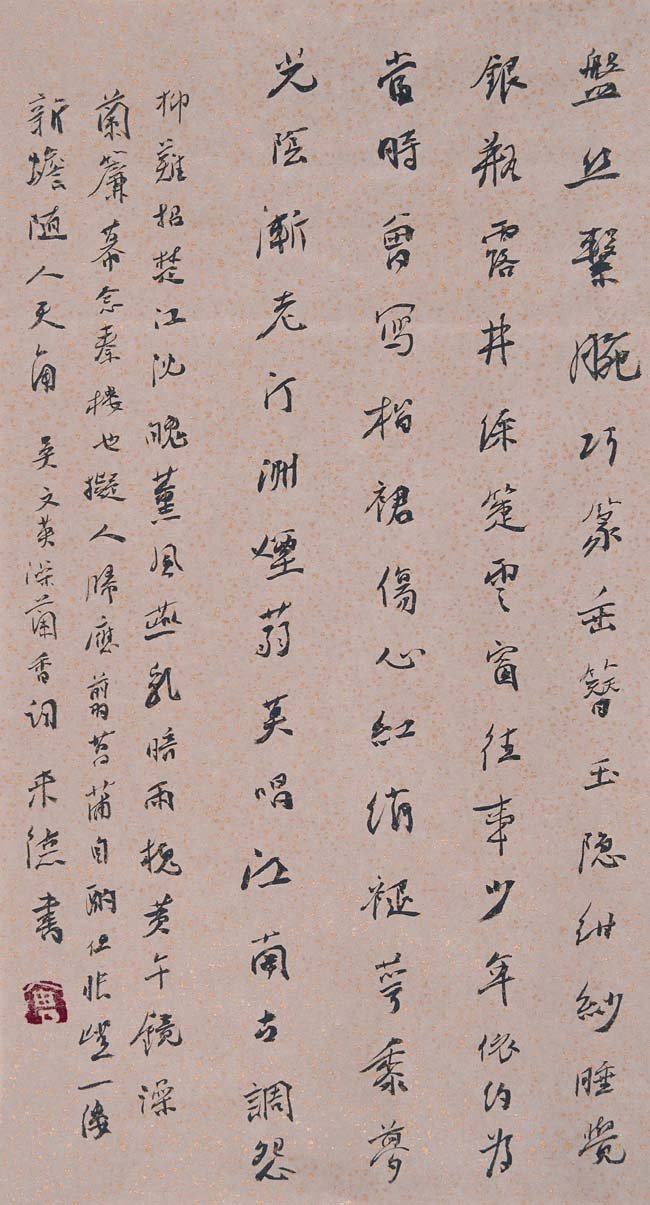 盤絲繫腕巧篆垂簪玉隐紺紗睡覺
銀瓶露井綵箑雲窗往事少年依約為
當時曾寫榴裙傷心紅綃褪萼黍夢
光陰漸老汀洲煙蒻莫唱江南古調怨
抑難招楚江沈魄薰風燕乳暗雨槐黄午鏡澡
蘭簾幕念秦樓也擬人歸應翦菖蒲自酌但悵望一縷
新蟾随人天角 吳文英澡蘭香詞 來德書